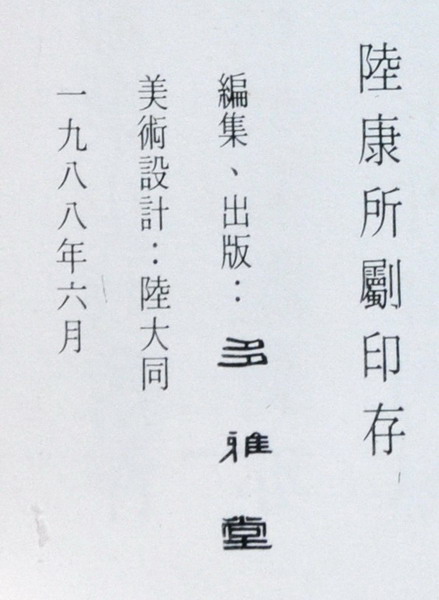 陸康所劚印存
編集、出版：多雅堂
美術設計：陸大同
一九八八年六月